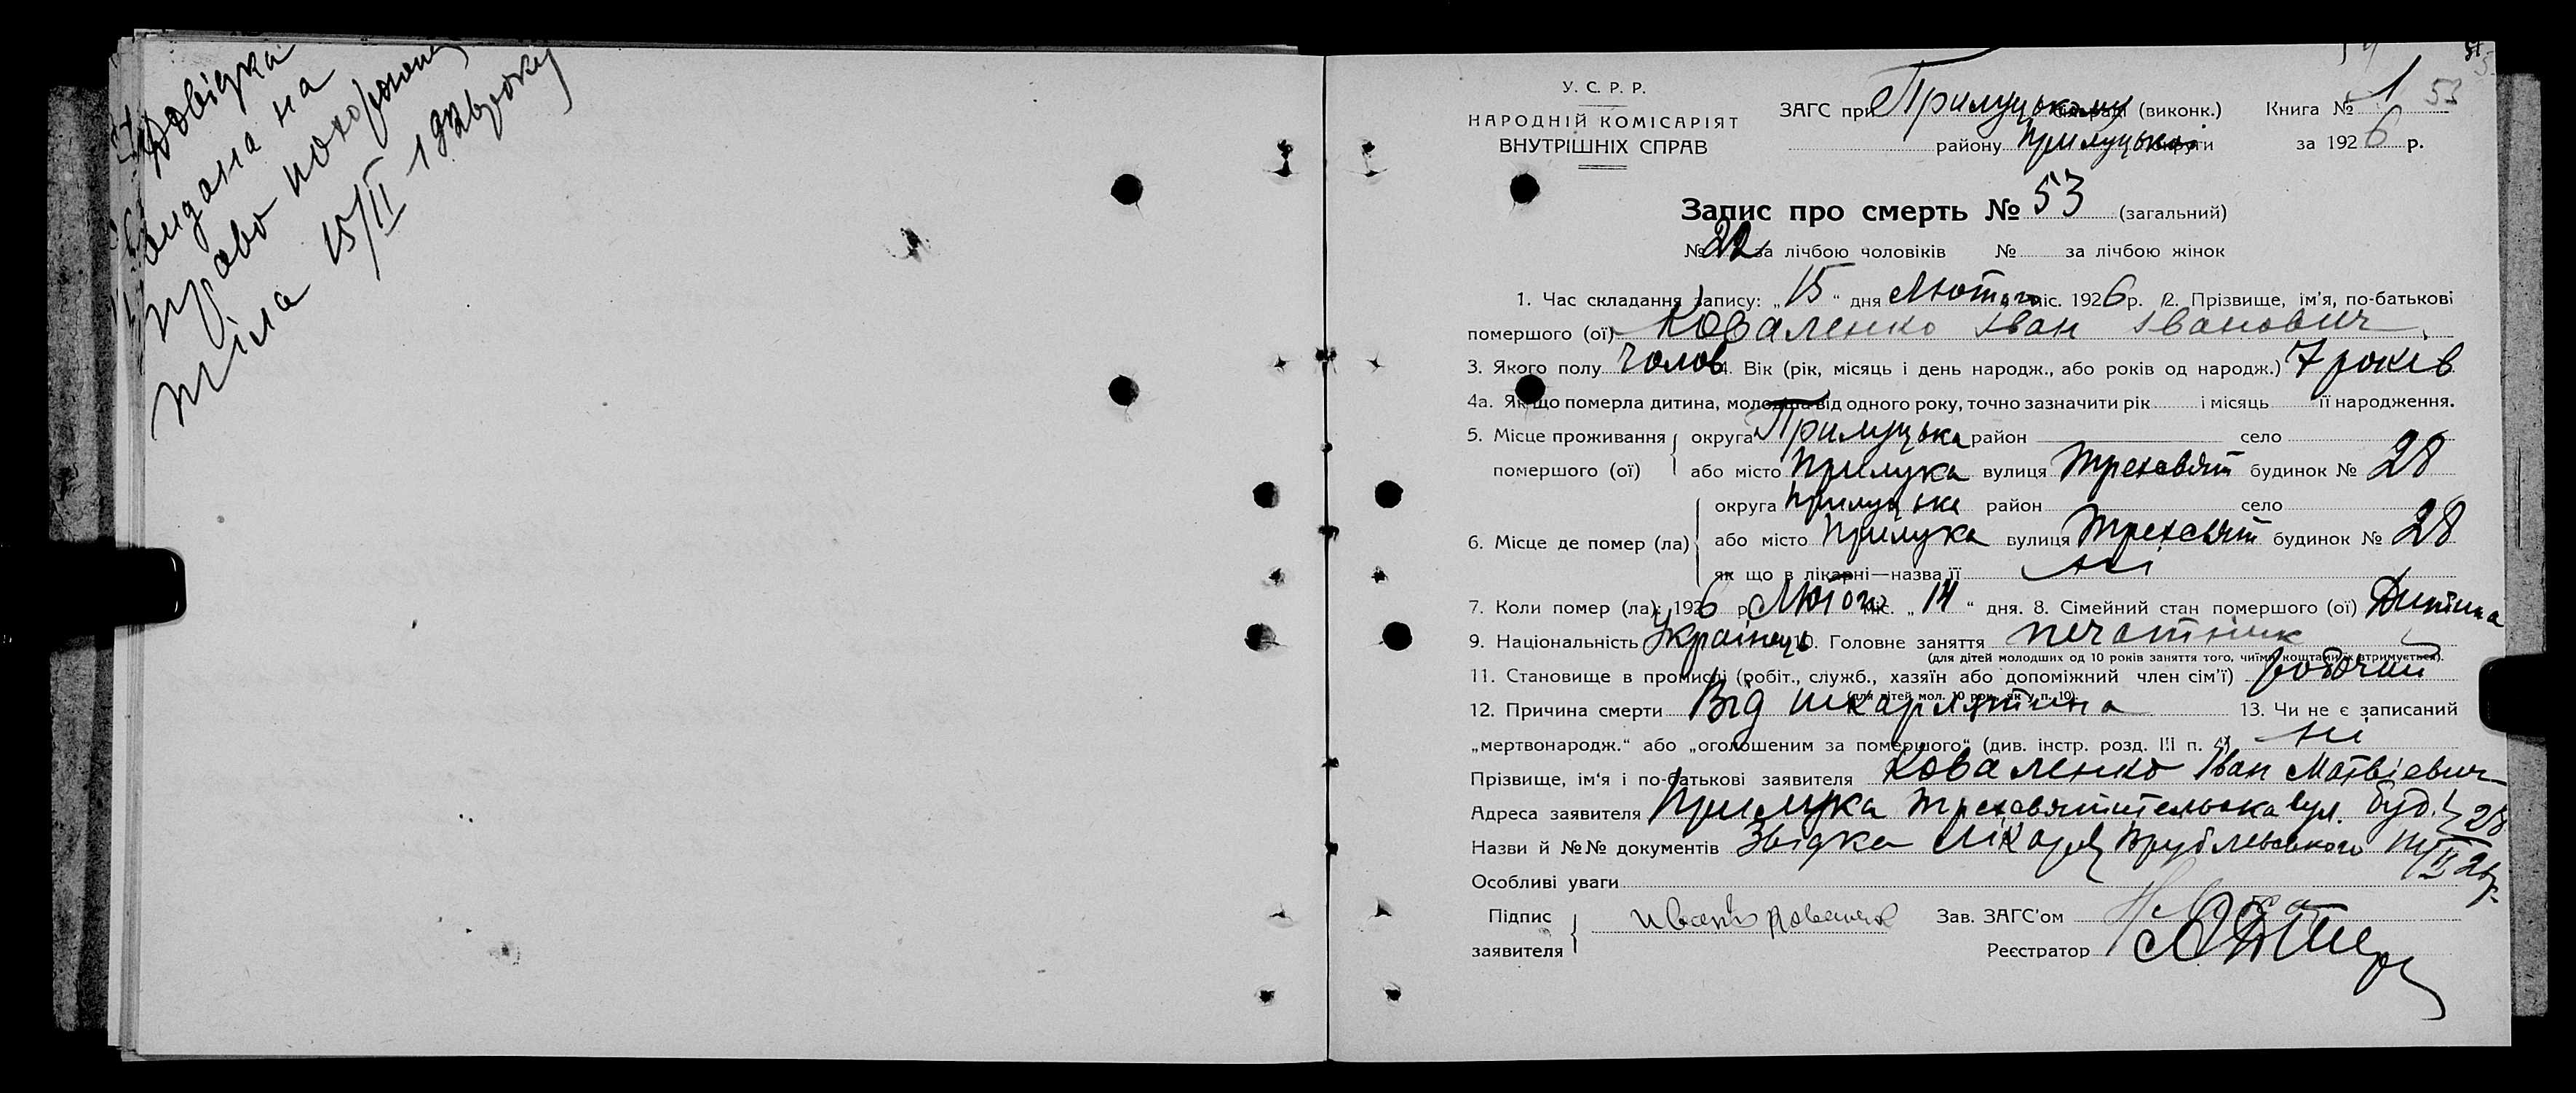 Довідка
видана на
право похорону
тіла 15/II 1926 року
У. С. Р. Р.
НАРОДНІЙ КОМІСАРІЯТ
ВНУТРІШНІХ СПРАВ
ЗАГС при Прилуцькому (виконк.) Книга № 1 53
району Прилуцької округи за 1926 р.
Запис про смерть № 53 (загальний)
№ 22 за лічбою чоловіків № за лічбою жінок
1. Час складання запису: „15“ дня Лютого міс. 1926 р. 2. Прізвище, ім’я, по-батькові
помершого (ої) Коваленко Іван Іванович
3. Якого полу чолов 4. Вік (рік, місяць і день народж., або років од народж.) 7 років
4а. Як що померла дитина, молодша від одного року, точно зазначити рік і місяць її народження.
5. Місце проживання округа Прилуцька район село
помершого (ої) або місто Прилука вулиця Трехсвят будинок № 28
округа Прилуцька район село
6. Місце де помер (ла) або місто Прилука вулиця Трехсвят будинок № 28
як що в лікарні—назва її ні
7. Коли помер (ла): 1926 р Лютого міс. „14“ дня. 8. Сімейний стан помершого (ої) Дитина
9. Національність Українець 10. Головне заняття печатник
(для дітей молодших од 10 років заняття того, чиїми коштами утримується).
11. Становище в промислі (робіт., служб., хазяїн або допоміжний член сім’ї) робочий
(для дітей мол. 10 рок., як у п. 10)
12. Причина смерти Від шкарлятина 13. Чи не є записаний
„мертвонародж.“ або „оголошеним за помершого“ (див. інстр. розд. III п. ) ні
Прізвище, ім‘я і по-батькові заявителя Коваленко Іван Матвієвич
Адреса заявителя Прилука Трехсвятительська вул. буд. 28
Назви й №№ документів Звідка лікаря Врублевського 14/II 26 р.
Особливі уваги
Підпис Зав. ЗАГС’ом
заявителя Реєстратор